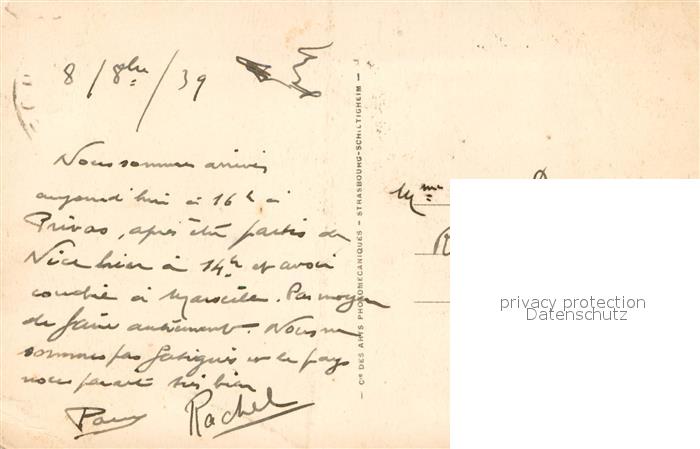 8 / 8bre / 39
Nous sommes arrivés
aujourd'hui à 16h à
Privas, après être partis de
Nice hier à 14h et avoir
couché à Marseille. Pas moyen
de faire autrement. Nous ne
sommes pas fatigués et le pays
nous parait très bien
Rachel
Cie DES ARTS PHOTOMECANIQUES — STRASBOURG-SCHILTIGHEIM —
Mme
privacy protection
Datenschutz